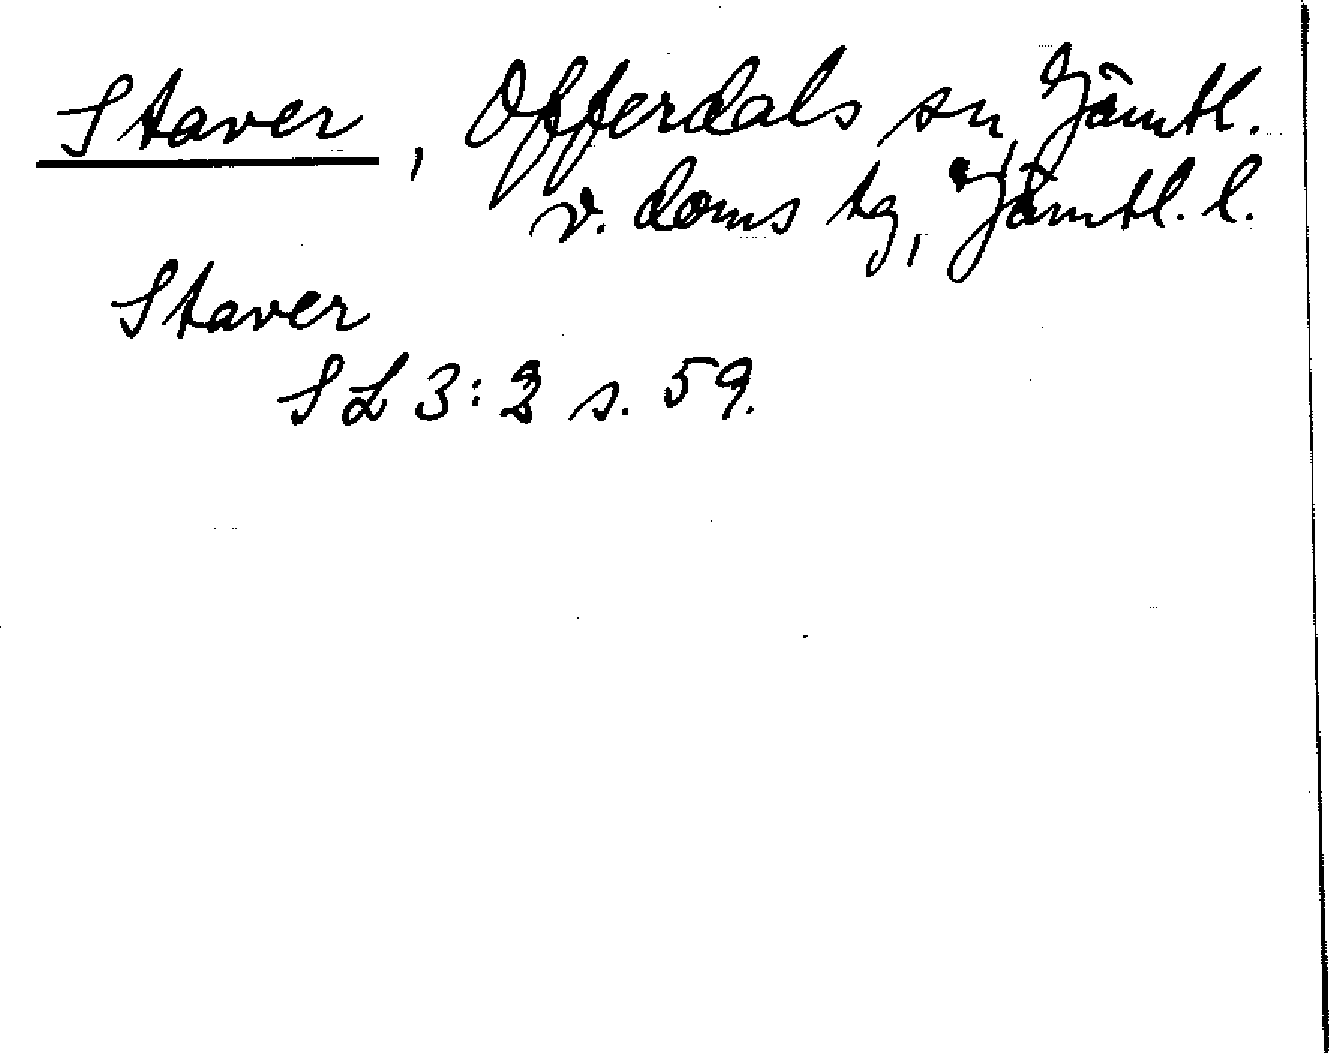 Staver, Offerdals sn, Jämtl.
v. doms tg, Jämtl. l.
Staver
SL 3:2 s. 59.